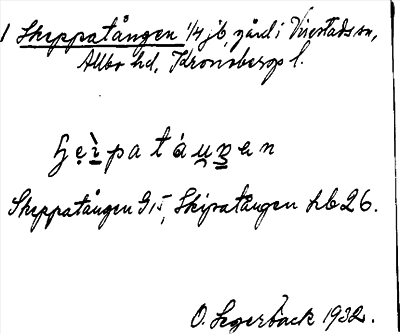 1 Skeppatången 1/4 jb, gård i Virestads sn,
Allbo hd, Kronobergs l.
Skeppatången G 15, Skipatången hb 26.
O. Segerbäck 1932.